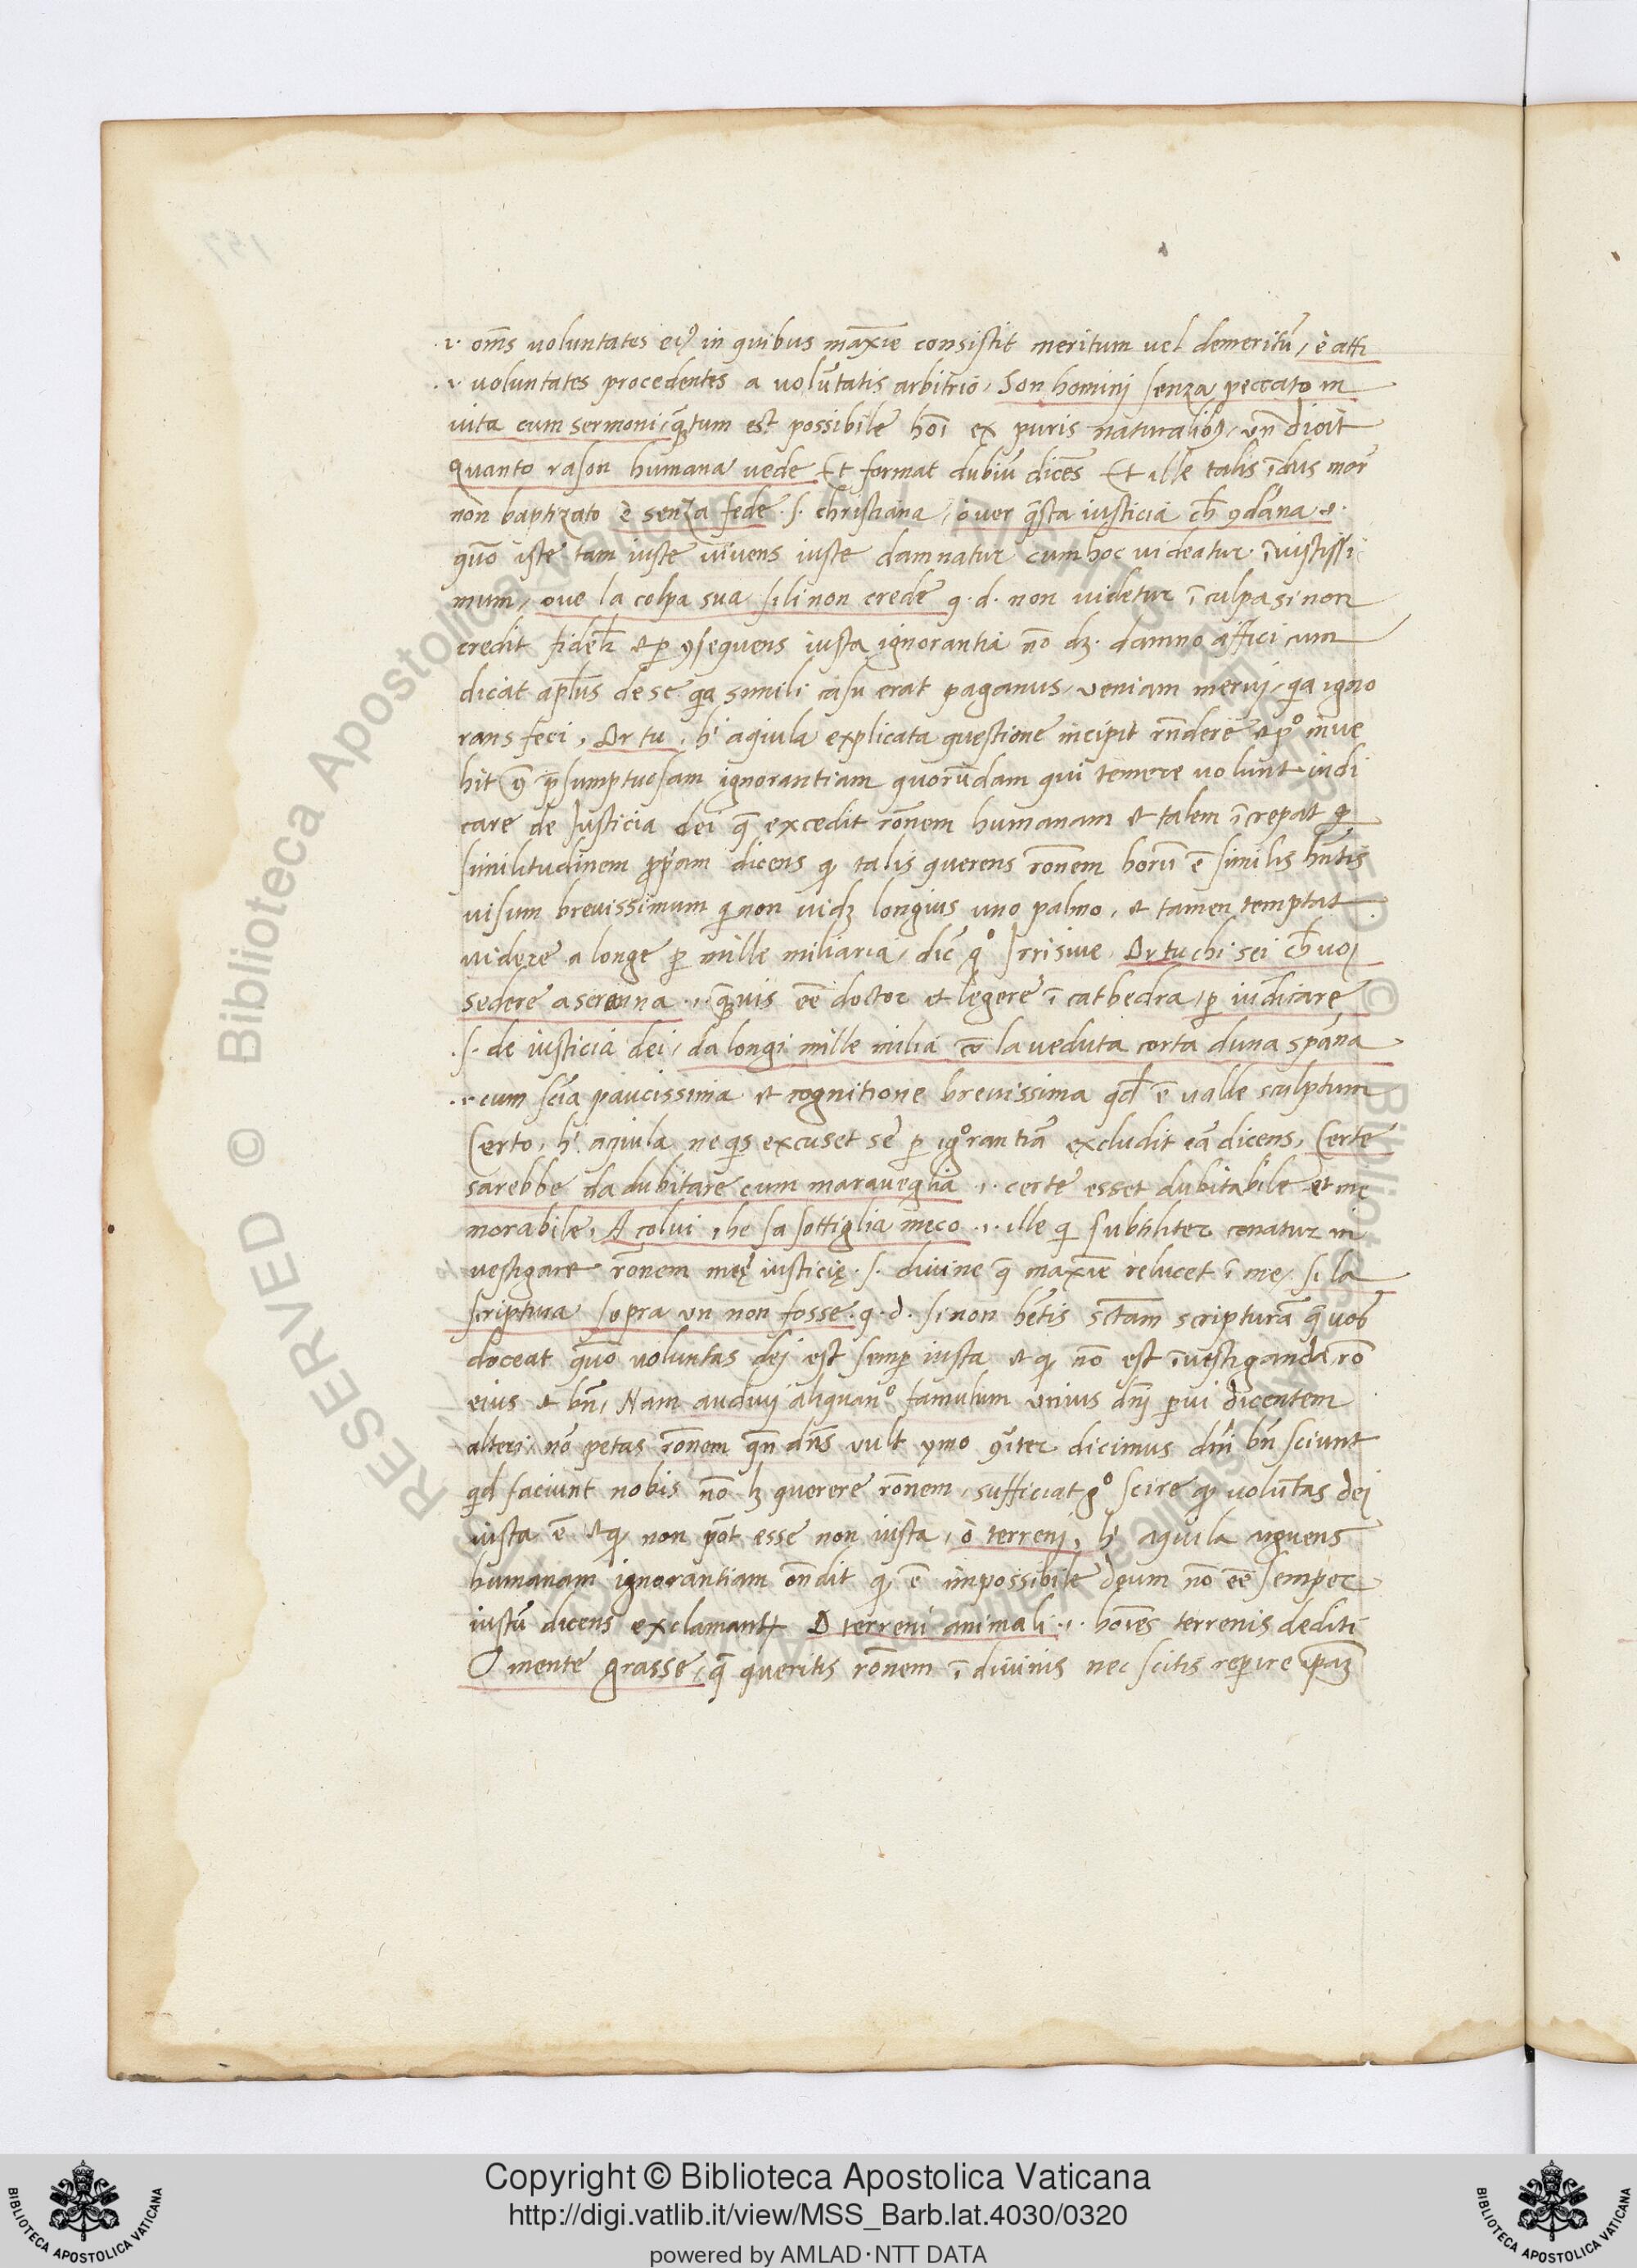 .i. om̄s voluntates eiꝰ in quibus max̄ie consistit meritum vel demeritū, è atti
.i. voluntates procedentes a volūtatis arbitrio, Son homini senza peccato in
vita cum sermoni, q̄tum est possibile hoī ex puris naturalibꝫ, vn̄ dicit
Quanto rason humana vede Et format dubiū dicēs Et ille talis īdus mor̄
non baptizato è senza fede .s. christiana, over q̄sta iusticia ch̄ ꝯdāna .i.
quō iste tam iuste vivens iuste damnatur cum hoc videatur īiustissi
mum, ove la colpa sua si li non crede q. d. non videtur ī culpa si non
credit fidelr̄ et ꝑ ꝯsequens iusta ignorantia nō dꝫ damno affici cum
dicat apl̄us de se qa simili casu erat paganus, veniam merui, qa igno
rans feci, Or tu, hͥ aqiula explicata questione incipit rn̄dere et pͦ inve
hit ꝯ p̄sumptuosam ignorantiam quorūdam qui temere volunt iudi
care de Iusticia dei q̄ excedit rōnem humanam et talem īcrepat ꝑ
similitudinem ꝓpiam dicens ꝙ talis querens rōnem horū ē similis hn̄tis
visum brevissimum qͥ non vidꝫ longius uno palmo, et tamen temptat
videre a longe ꝑ mille miliaria, dic̄ gͦ Irrisive, Or tu chi sei ch̄ voi
sedere a scranna .i. q̄vis eē doctor et legere ī cathedra, ꝑ iudicare
.s. de iusticia dei, da longi mille milia cō la veduta corta duna spāna
.i. cum scīa paucissima et cognitione brevissima qd̄ ē valle sculptum
Certo, hͥ aqiula ne qͥs excuset se ꝑ igͦrantiā excludit eā dicens, Certe
sarebbe da dubitare cum maraveglia .i. certe esset dubitabile et me
morabile, A colui, he sa sottiglia meco .i. ille qͥ subtiliter conatur in
vestigare rōnem meę iusticię .s. divine q̄ max̄ie relucet ī me, si la
scriptura sopra vn non fosse .q. d. si non hētis sc̄tam scripturā q̄ vob̄
doceat quō voluntas dei est semꝑ iusta et ꝙ nō est īvestiganda rō
eius et bn̄, Nam audivi aliquanͦ famulum unius dn̄i ꝑvi dicentem
alteri, nō petas rōnem qn̄ dn̄s vult ymo ꝯīter dicimus dn̄i bn̄ sciunt
qͥd faciunt nobis nō lꝫ querere rōnem, sufficiat gͦ scire ꝙ volūtas dei
iusta ē et ꝙ non pōt esse non iusta, ò terreni, hͥ aquila arguens
humanam ignorantiam on̄dit ꝙ ē impossibile deum nō eē semper
iustū dicens exclamant O terreni animali .i. hoīes terrenis dediti
O mente grasse, q̄ queritis rōnem ī divinis nec scitis reꝑire ip̄aꝫ
Copyright © Biblioteca Apostolica Vaticana
http://digi.vatlib.it/view/MSS_Barb.lat.4030/0320
powered by AMLAD·NTT DATA